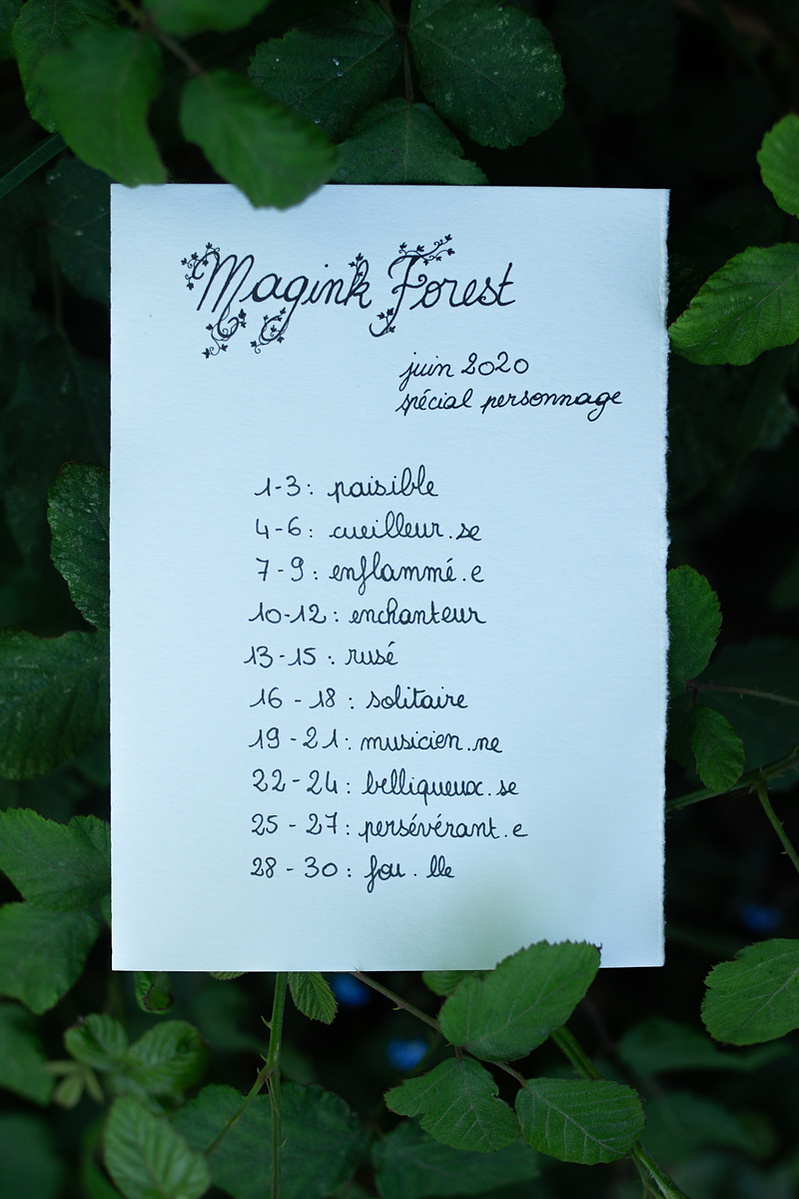 Magink Forest
juin 2020
spécial personnage
1-3: paisible
4-6: cueilleur.se
7-9: enflammé.e
10-12: enchanteur
13-15: rusé
16-18: solitaire
19-21: musicien.ne
22-24: belliqueux.se
25-27: persévérant.e
28-30: fou.lle